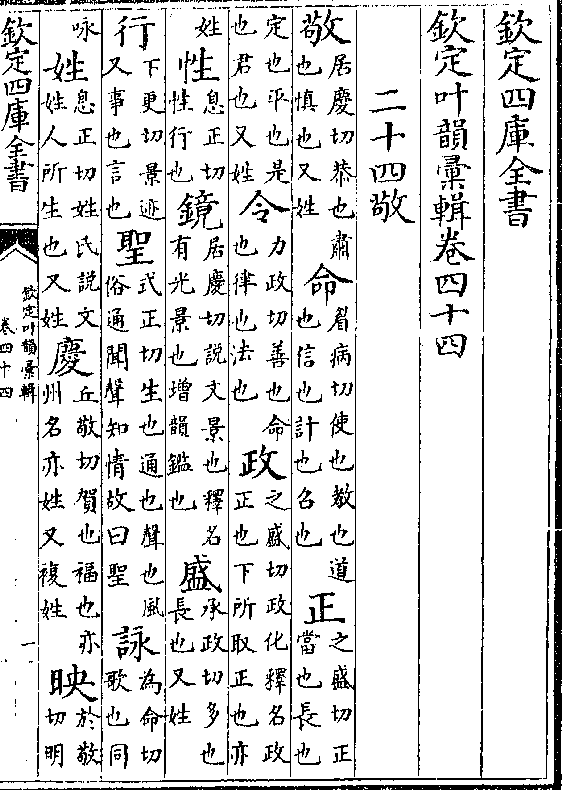 欽定四庫全書
欽定叶韻彙輯卷四十四
二十四敬
敬居慶切恭也肅也慎也又姓 命眉病切使也教也道也信也計也召也 正之盛切正當也長也
定也平也是也君也又姓 令力政切善也命也律也法也 政之盛切政化釋名政正也下所取正也亦
姓 性息正切性行也 鏡居慶切說文景也釋名有光景也增韻鑑也 盛承政切多也長也又姓
行下更切景迹又事也言也 聖式正切生也通也聲也風俗通聞聲知情故曰聖 詠為命切歌也同
咏 姓息正切姓氏說文姓人所生也又姓 慶丘敬切賀也福也亦州名亦姓又複姓 映於敬切明
欽定四庫全書
欽定叶韻彙輯
卷四十四
一